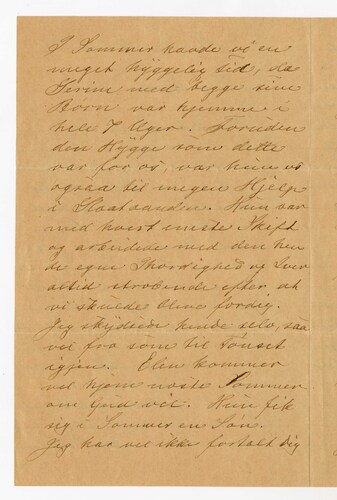 I Sommer havde vi en
meget hyggelig tid, da
med begge sine
Børn var hjemme i
hele 7 Uger. Foruden
den Hygge som dette
var for os, var hun os
ogsaa til megen Hjelp
i Slaataanden. Hun var
med hvert eneste Skift
og arbeidede med den hen
de egen Ihærdighed og Iver
altid strebende efter at
vi skulde blive færdig.
Jeg skydsede hende selv, saa
vel fra som til Tønset
igjen. Elen kommer
vel hjem næste Sommer
om Gud vil. Hun fik
sig i Sommer en Søn.
Jeg har vel ikke fortalt Dig